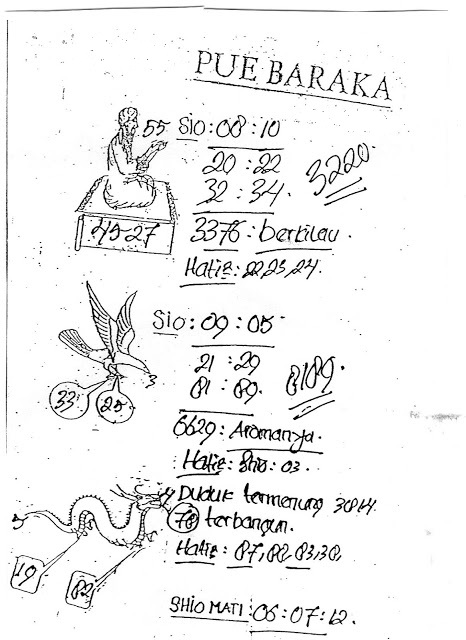 PUE BARAKA
55 Sio : 08 : 10
20 : 22
32 : 34. 3220.
45-27
3376 : berkilau.
Hatie : 22, 23, 24.
Sio : 09 : 05
21 : 29
81 : 89. 8189.
33 25
6629 : Aromanya.
Hatie : Shio : 03.
Duduk termenung 3814.
78 terbangun.
Hatie : 87, 88, 83, 38,
19 82
SHIO MATI : 06 : 07 : 12.